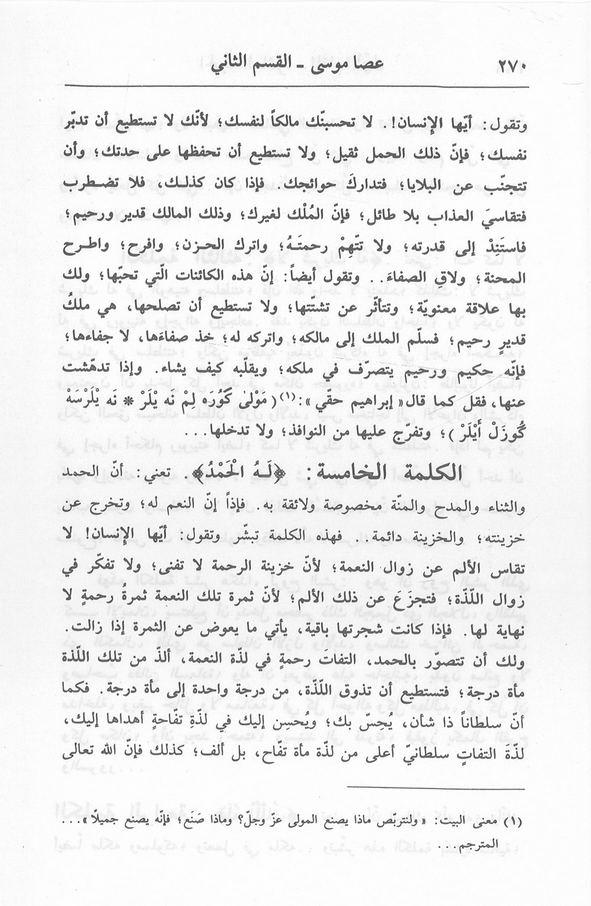 ٢٧٠ عصا موسى ـ القسم الثاني
وتقول: أيّها الإنسان!. لا تحسبنّك مالكاً لنفسك؛ لأنّك لا تستطيع أن تدبّر
نفسك؛ فإنّ ذلك الحمل ثقيل؛ ولا تستطيع أن تحفظها على حدتك؛ وأن
تتجنّب عن البلايا؛ فتداركَ حوائجك. فإذا كان كذلك، فلا تضطرب
فتقاسيَ العذاب بلا طائل؛ فإنّ المُلْك لغيرك؛ وذلك المالك قدير ورحيم؛
فاستَنِدْ إلى قدرته؛ ولا تتّهِمْ رحمتَهُ؛ واترك الحزن؛ وافرح؛ واطرح
المحنة؛ ولاقِ الصفاءَ.. وتقول أيضاً: إنّ هذه الكائنات الّتي تحبّها؛ ولك
بها علاقة معنويّة؛ وتتأثّر عن تشتّتها؛ ولا تستطيع أن تصلحها، هي ملكُ
قديرٍ رحيم؛ فسلّم الملك إلى مالكه؛ واتركه له؛ خذ صفاءَها، لا جفاءها؛
فإنّه حكيم ورحيم يتصرّف في ملكه؛ ويقلّبه كيف يشاء. وإذا تدهّشت
عنها، فقل كما قال «إبراهيم حقّي»:(١) (مَوْلىٰ كُورَه لِمْ نَه يْلَرْ * نَه يْلَرْسَهْ
كُوزَلْ أَيْلَرْ)؛ وتفرّج عليها من النوافذ؛ ولا تدخلها...
الكلمة الخامسة: ﴿لَهُ الْحَمْدُ﴾. تعني: أنّ الحمد
والثناء والمدح والمنّة مخصوصة ولائقة به. فإذاً إنّ النعم له؛ وتخرج عن
خزينته؛ والخزينة دائمة... فهذه الكلمة تبشّر وتقول: أيّها الإنسان! لا
تقاس الألم عن زوال النعمة؛ لأنّ خزينة الرحمة لا تفنى؛ ولا تفكّر في
زوال اللّذّة؛ فتجزَعَ عن ذلك الألم؛ لأنّ ثمرة تلك النعمة ثمرة رحمةٍ لا
نهاية لها. فإذا كانت شجرتها باقية، يأتي ما يعوض عن الثمرة إذا زالت.
ولك أن تتصوّر بالحمد، التفاتَ رحمةٍ في لذّة النعمة، ألذّ من تلك اللذّة
مأة درجة؛ فتستطيع أن تذوق اللذّة، من درجة واحدة إلى مأة درجة. فكما
أنّ سلطاناً ذا شأن، يُحِسّ بك؛ ويُحسِن إليك في لذّةِ تفّاحةٍ أهداها إليك،
لذّةَ التفاتٍ سلطانيّ أعلى من لذّة مأة تفّاح، بل ألف؛ كذلك فإنّ الله تعالى
(١) معنى البيت: «ولنتربّص ماذا يصنع المولى عزّ وجلّ؟ وماذا صَنَع؛ فإنّه يصنع جميلاً»...
المترجم...